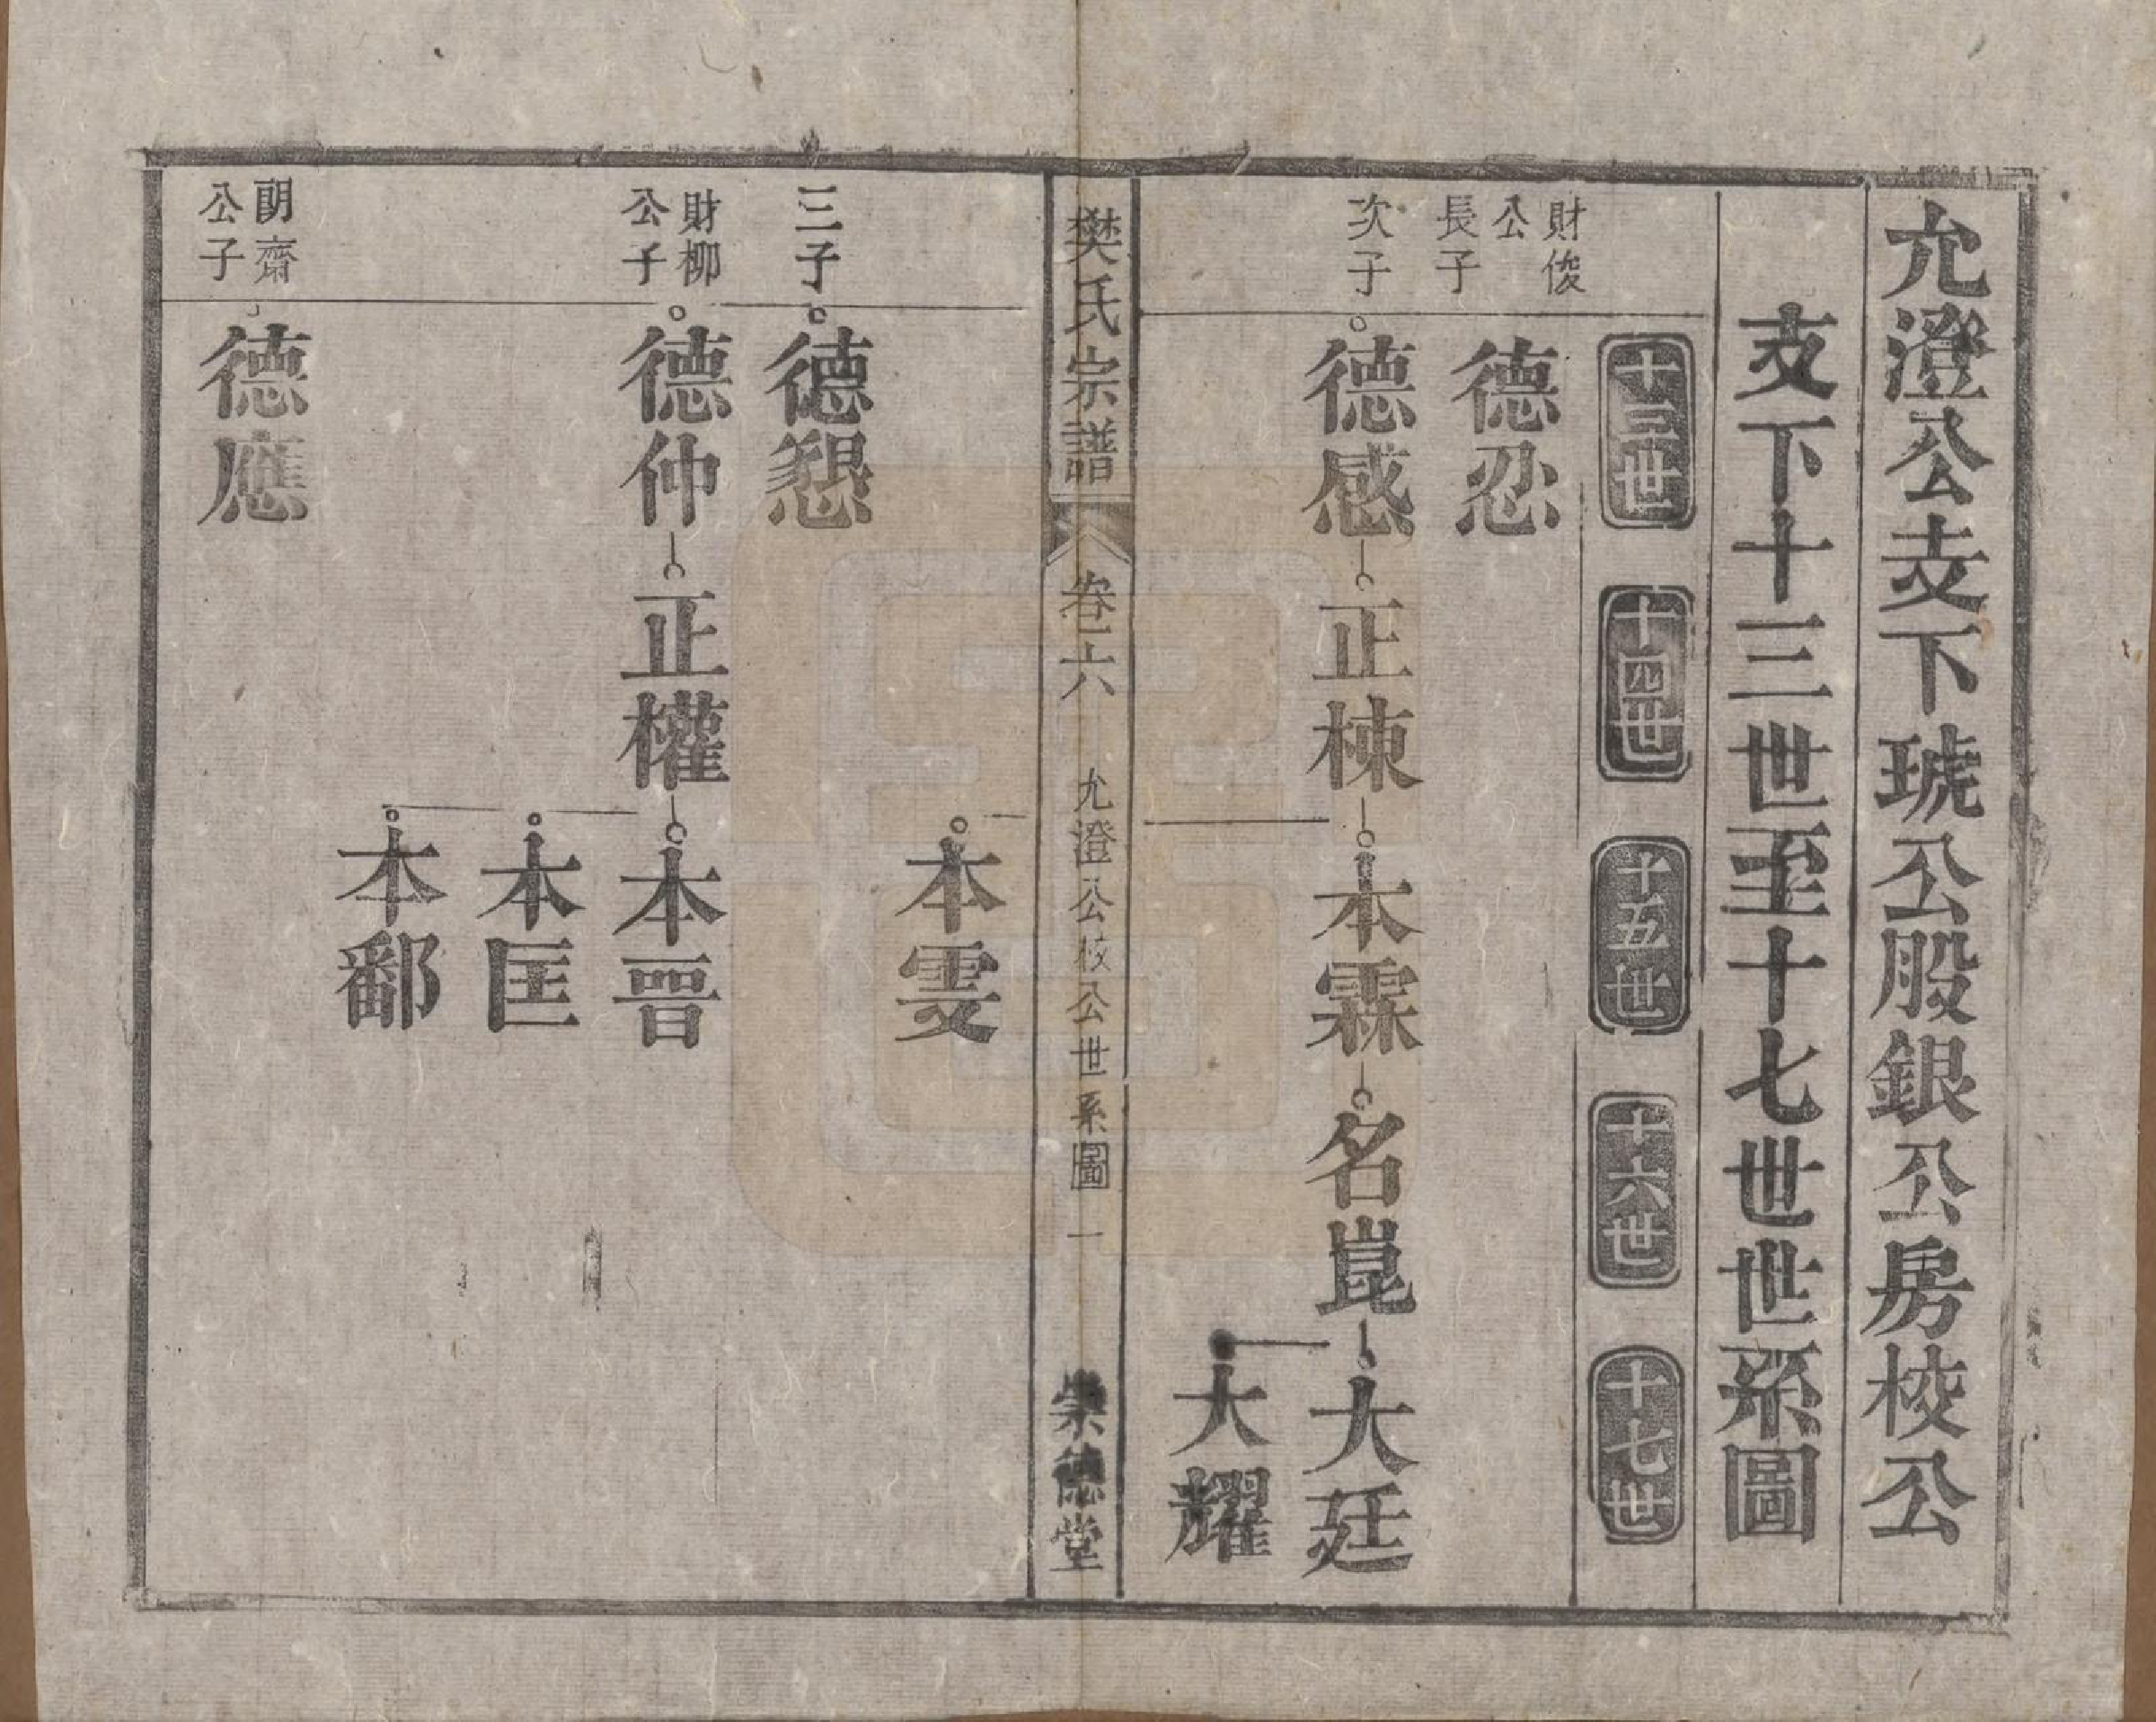 允澄公支下琥公股銀公房校公
支下十三世至十七世世系圖
十三世
十四世
十五世
十六世
十七世
財俊
公
長子
德忍
次子
德感
正棟
本霖
名崑
大廷
大耀
樊氏宗譜
卷六
允澄公校公世系圖
一
崇德堂
本雯
三子
德懇
財柳
公子
德仲
正權
本晉
本匡
本鄱
朗齋
公子
德應